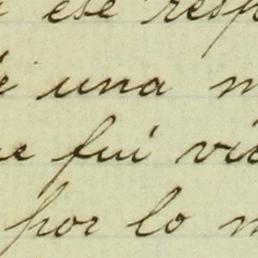 ese resp
una m
fui vic
por lo m